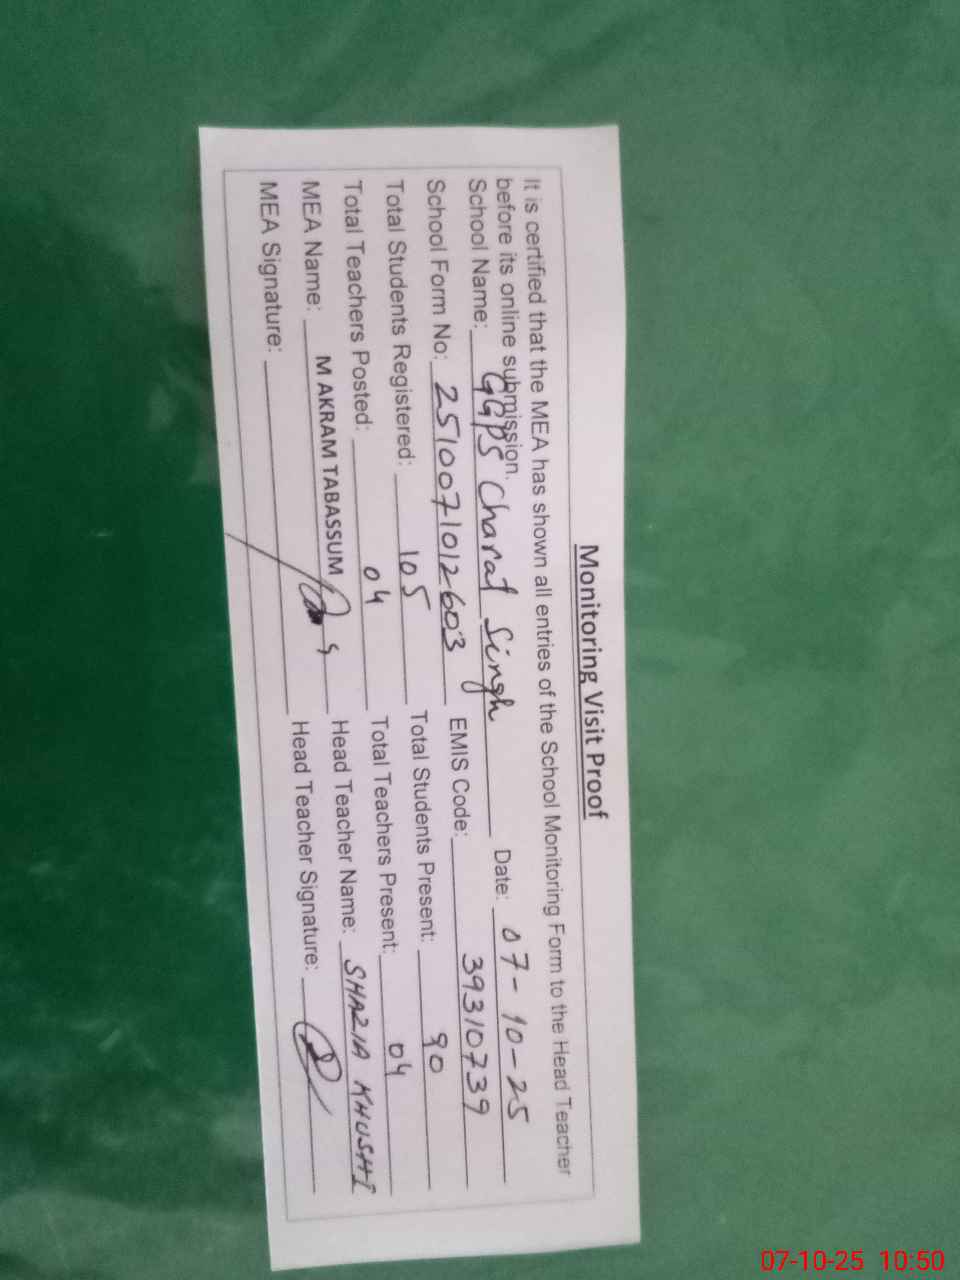 Monitoring Visit Proof
It is certified that the MEA has shown all entries of the School Monitoring Form to the Head Teacher
before its online submission.
School Name: GGPS Charat Singh Date: 07-10-25
School Form No: 2510071012603 EMIS Code: 39310739
Total Students Registered: 105 Total Students Present: 90
Total Teachers Posted: 04 Total Teachers Present: 04
MEA Name: M AKRAM TABASSUM Head Teacher Name: SHAZIA KHUSHI
MEA Signature: Head Teacher Signature:
07-10-25 10:50